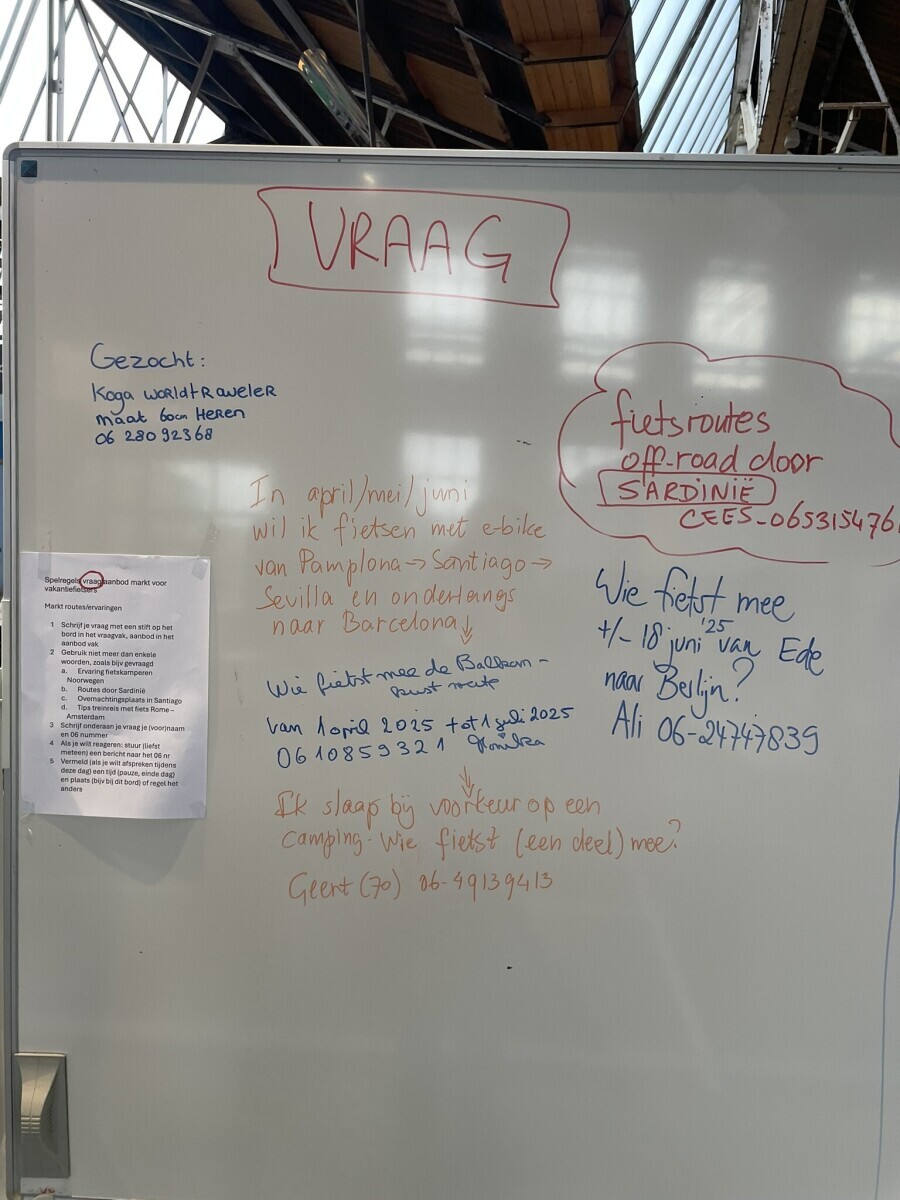 VRAAG
Gezocht:
Koga WORLDTRAVELER
maat 60cm HEREN
06 280 92368
fietsroutes
off-road door
SARDINIË
CEES-065315476
In april/mei/juni
wil ik fietsen met e-bike
van Pamplona → Santiago →
Sevilla en onderlangs
naar Barcelona
Wie fietst mee de Balkan-
kust route
van 1 april 2025 tot 1 juli 2025
0610859321
Ik slaap bij voorkeur op een
camping. Wie fietst (een deel) mee?
Geert (70) 06-49139413
Wie fietst mee
+/- 18 juni '25 van Ede
naar Berlijn?
Ali 06-24747839
Spelregels vraag aanbod markt voor
vakantiefietsers
Markt routes/ervaringen
1 Schrijf je vraag met een stift op het
bord in het vraagvak, aanbod in het
aanbod vak
2 Gebruik niet meer dan enkele
woorden, zoals bijv gevraagd
a. Ervaring fietskamperen
Noorwegen
b. Routes door Sardinië
c. Overnachtingsplaats in Santiago
d. Tips treinreis met fiets Rome –
Amsterdam
3 Schrijf onderaan je vraag je (voor)naam
en 06 nummer
4 Als je wilt reageren: stuur (liefst
meteen) een bericht naar het 06 nr
5 Vermeld (als je wilt afspreken tijdens
deze dag) een tijd (pauze, einde dag)
en plaats (bijv bij dit bord) of regel het
anders